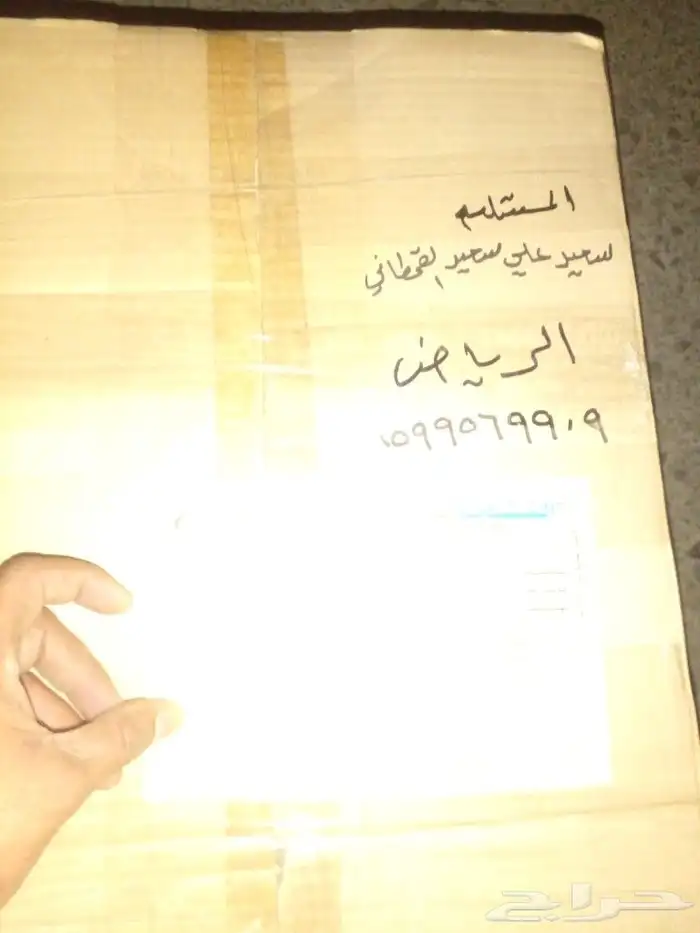 المستلم
سعيد علي سعيد القحطاني
الرياض
٠٥٩٩٥٦٩٩٠٩
حراج